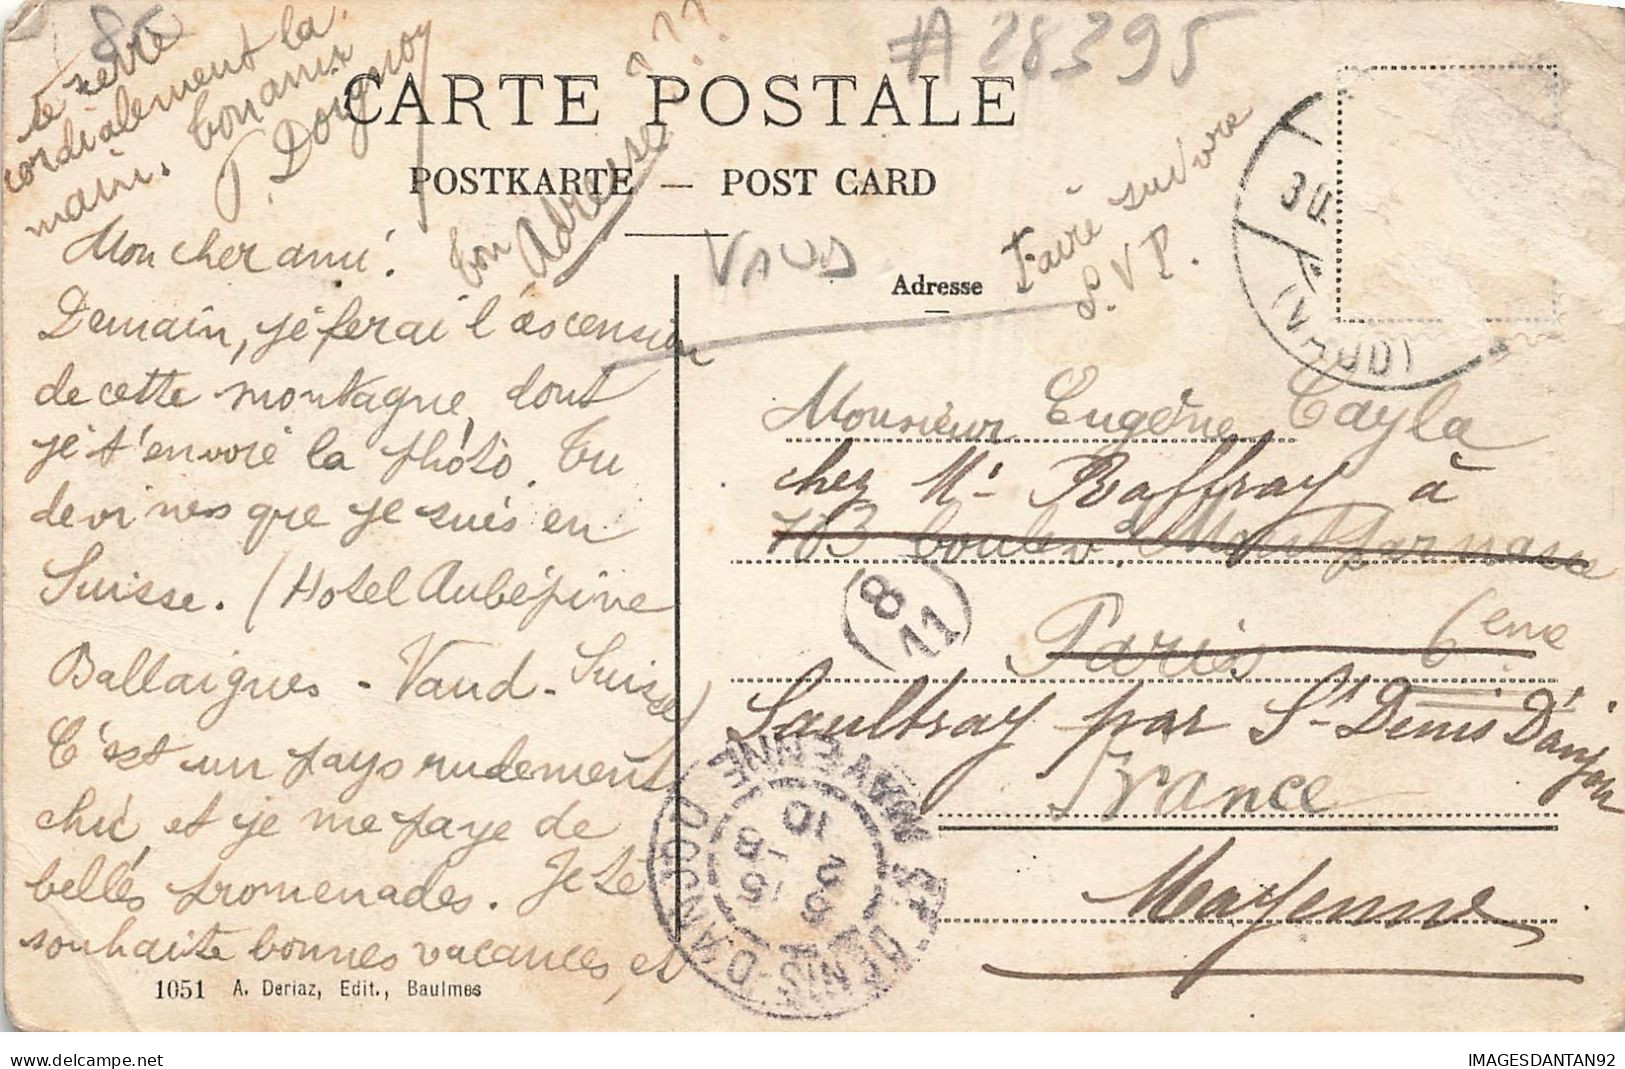 85
# A 28395
CARTE POSTALE
POSTKARTE — POST CARD
Adresse
VAUD
Faire suivre
S.V.P.
ton Adresse ???
Mon cher ami!
Demain, je ferai l'ascension
de cette montagne, dont
je t'envoie la photo. Tu
devines que je suis en
Suisse. (Hotel Aubépine
Ballaigues - Vaud - Suisse)
C'est un pays rudement
chic et je me paye de
belles promenades. Je te
souhaite bonnes vacances, et
te serre
cordialement la
main. Ton ami
Monsieur Eugène Cayla
chez Mr Raffray à
boulevd Montparnasse
Paris 6eme
Saultray par St Denis D'anjou
France
Mayenne
(VAUD)
8
11
ST DENIS-D'ANJOU
MAYENNE
10
1051 A. Deriaz, Edit., Baulmes
IMAGESDANTAN92